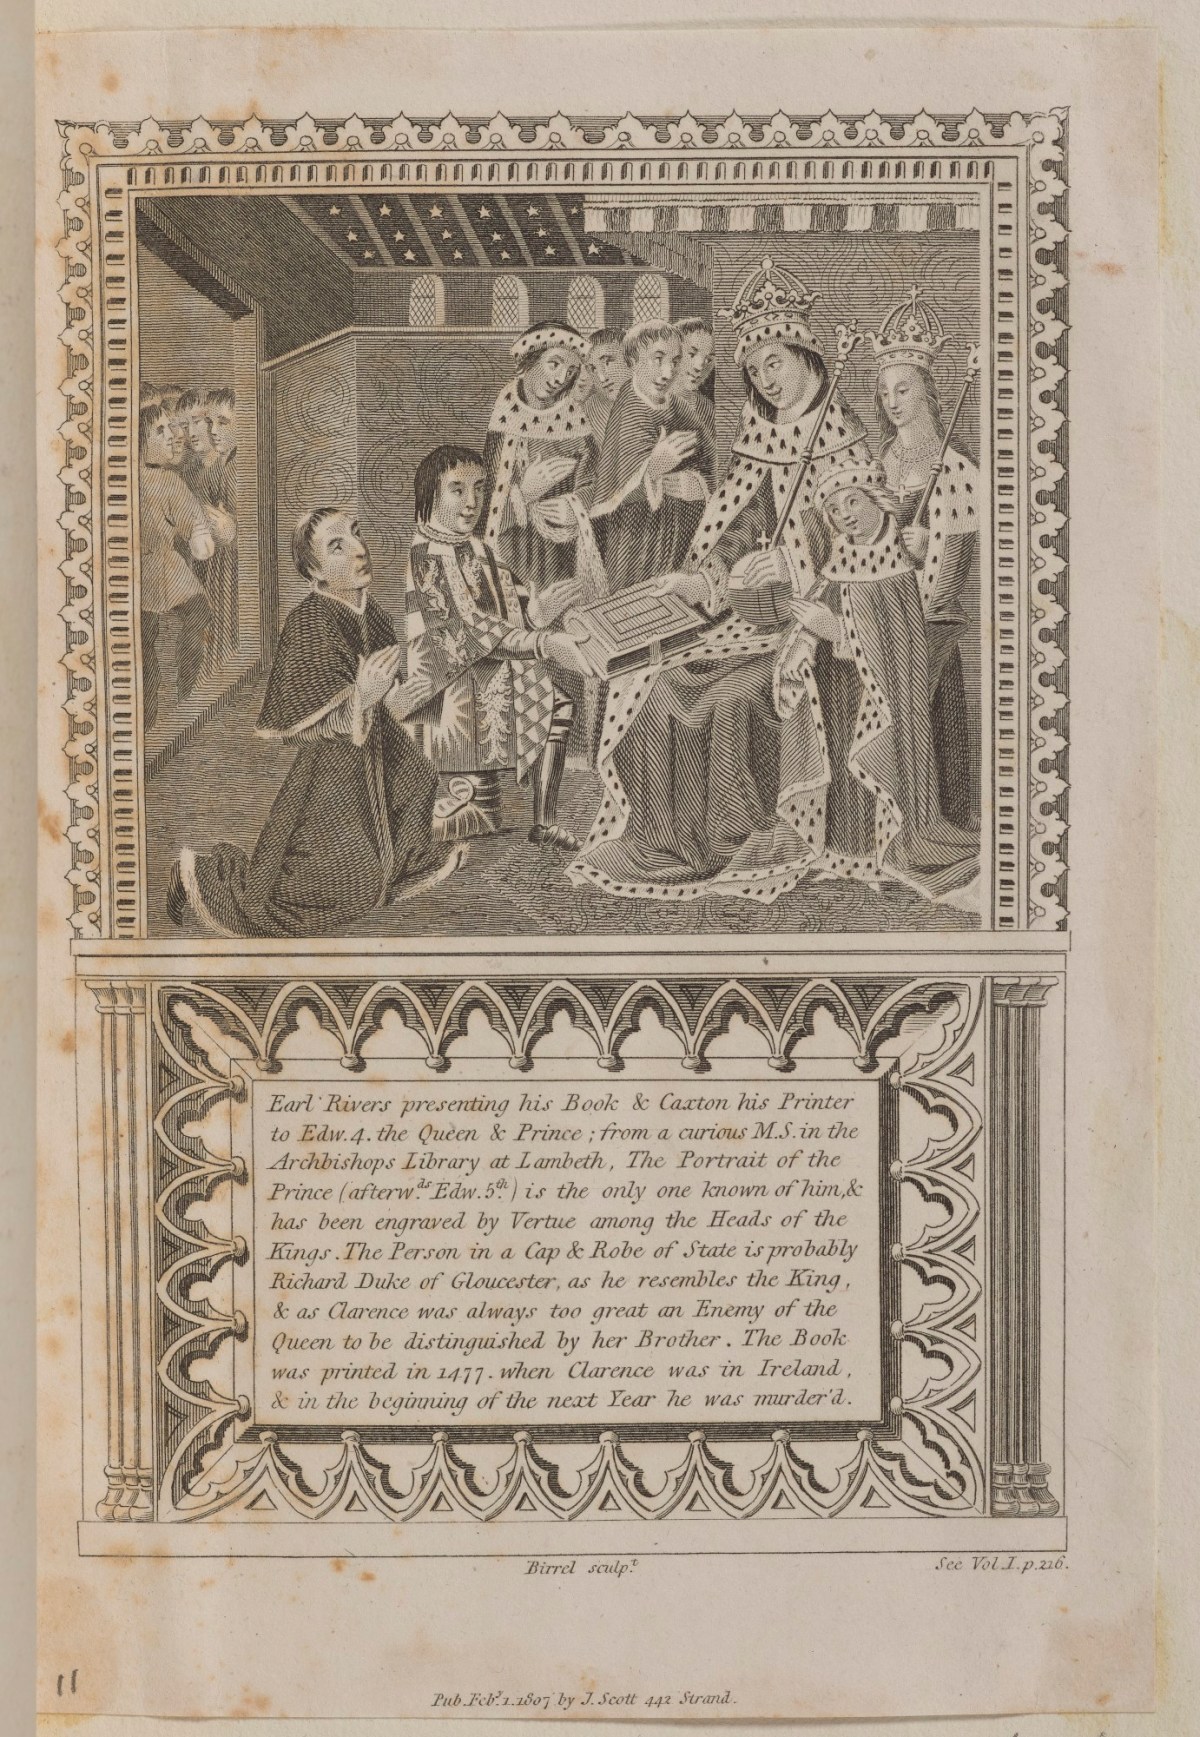 Earl Rivers presenting his Book & Caxton his Printer
to Edw. 4. the Queen & Prince; from a curious M.S. in the
Archbishops Library at Lambeth, The Portrait of the
Prince (afterw.ds Edw. 5th.) is the only one known of him, &
has been engraved by Vertue among the Heads of the
Kings. The Person in a Cap & Robe of State is probably
Richard Duke of Gloucester, as he resembles the King,
& as Clarence was always too great an Enemy of the
Queen to be distinguished by her Brother. The Book
was printed in 1477. when Clarence was in Ireland,
& in the beginning of the next Year he was murder'd.
Birrel sculp.t
See Vol. I. p. 226.
11
Pub. Feb.y 1. 1807 by J. Scott 442 Strand.